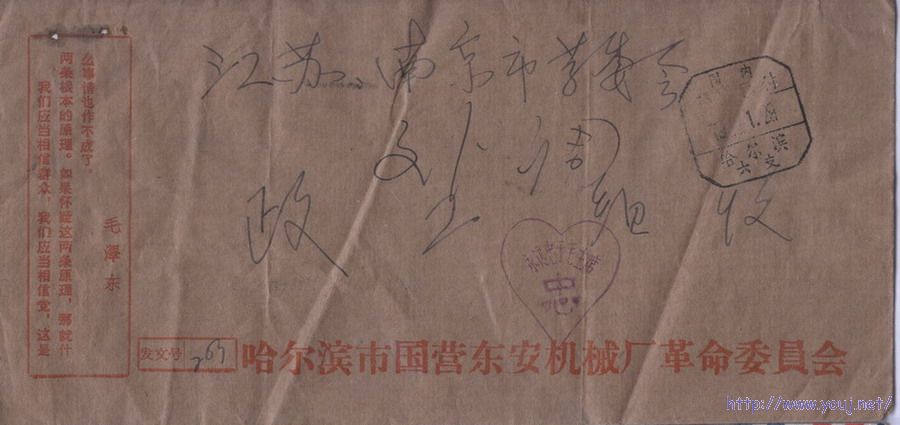 我们应当相信群众,我们应当相信党,这是
两条根本的原理。如果怀疑这两条原理,那就什
么事情也作不成了。
毛泽东
江苏 南京市革委会
政工组 收
国内
1.26
哈尔滨
六支
永远忠于毛主席
忠
发文号 267
哈尔滨市国营东安机械厂革命委員会
http://www.youj.net/